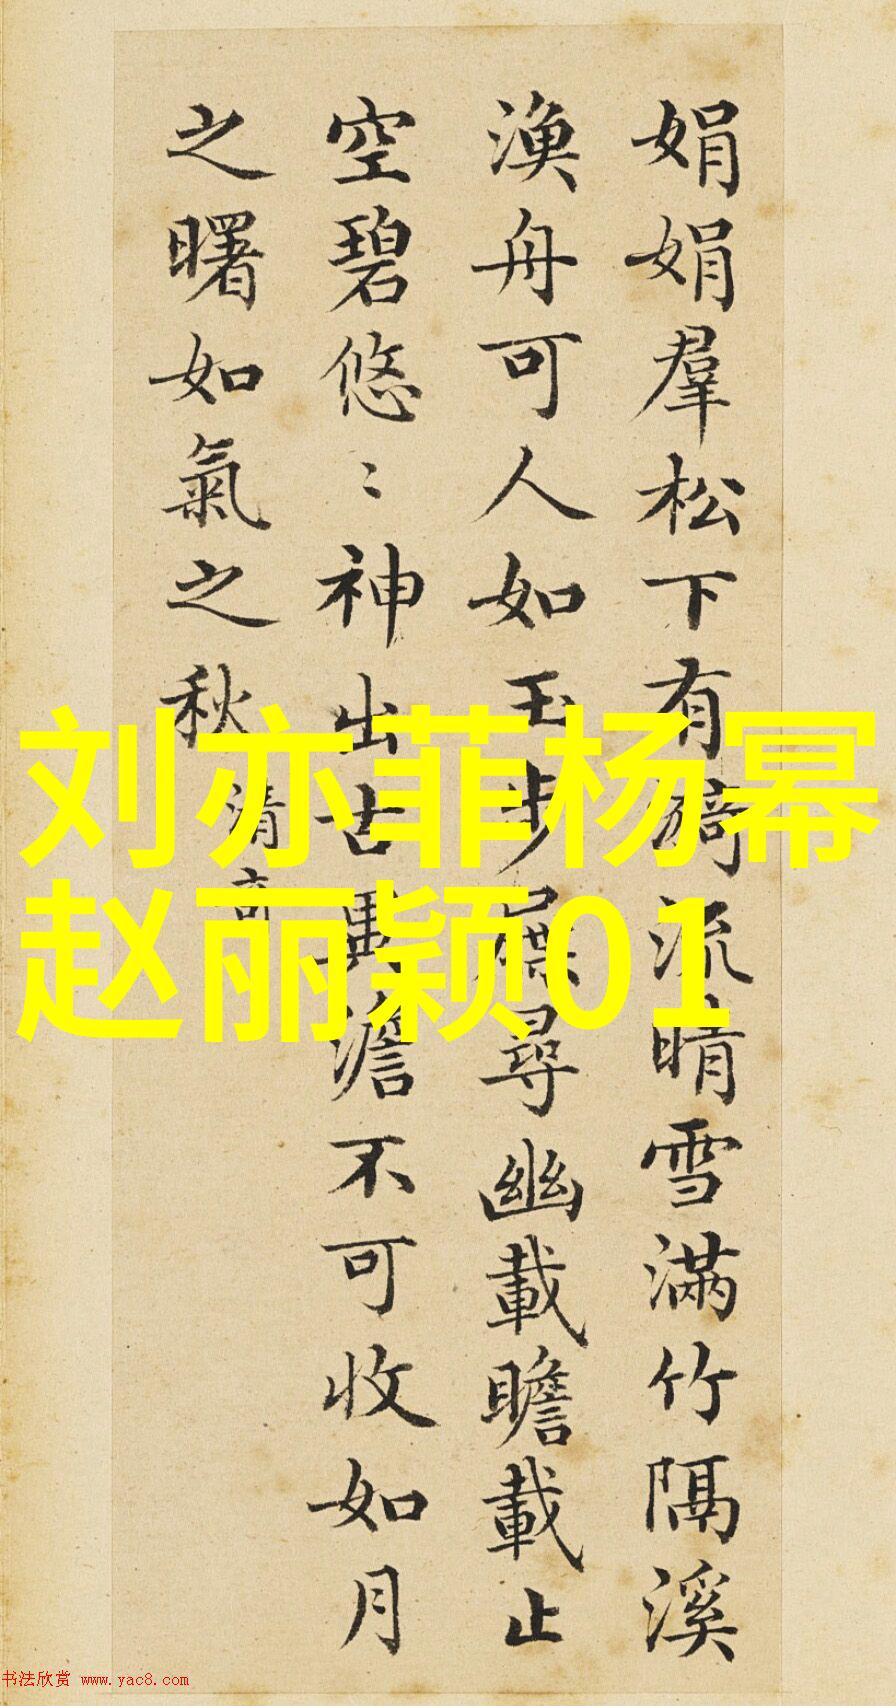 娟娟羣松下有漪流晴雪滿竹隔溪
漁舟可人如玉步屧尋幽載瞻載止
空碧悠〻神出古異澹不可收如月
之曙如氣之秋
清奇
刘亦菲杨幂
赵丽颖01
书法欣赏 www.yac8.com